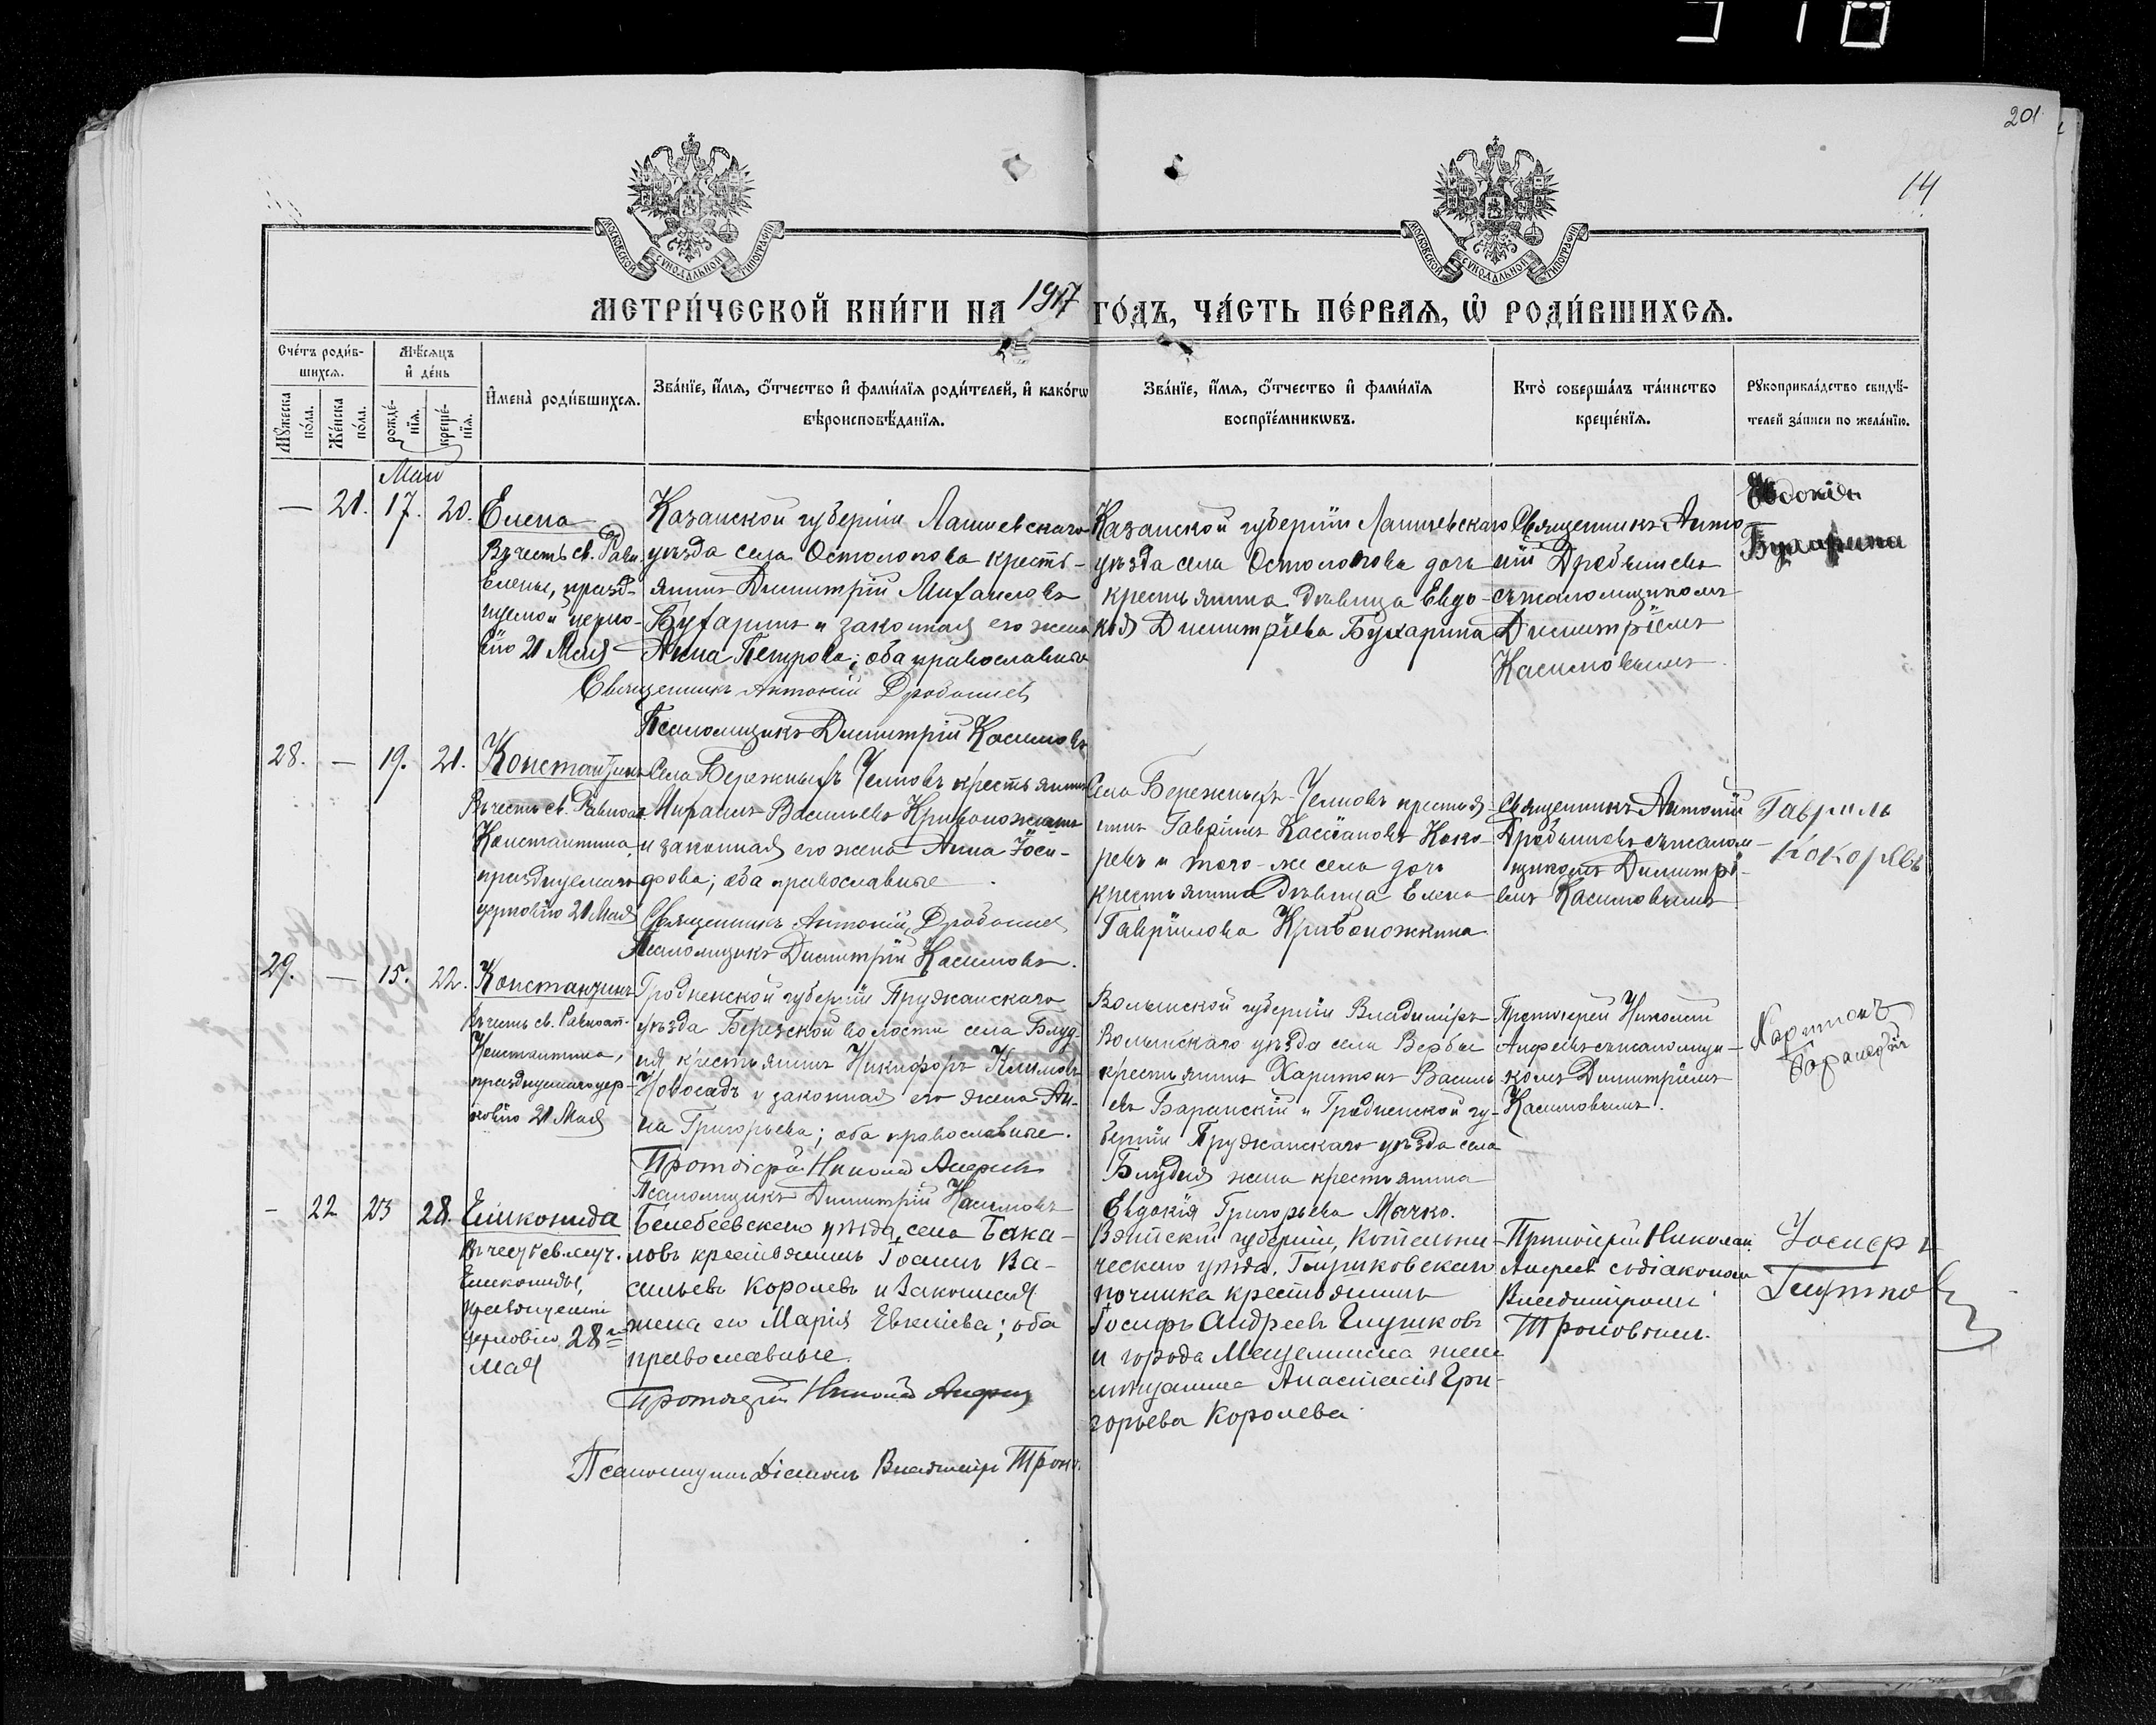 201
14
МЕТРИ́ЧЕСКОЙ КНИ́ГИ НА 1917 ГО́ДЪ, ЧА́СТЬ ПЕ́РВАЯ, Ѽ РОДИ́ВШИХСЯ.
Сче́тъ роди́в-
шихся.
Мѣ́сяцъ
и҆ де́нь
И҆мена̀ роди́вшихся.
Зва́нїе, и҆́мя, ѻ҆́тчество и҆ фами́лїя роди́телей, и҆ како́гѡ
вѣроисповѣ́данїя.
Зва́нїе, и҆́мя, ѻ҆́тчество и҆ фами́лїя
воспрїе́мникѡвъ.
Кто̀ соверша́лъ та́инство
креще́нїя.
Рꙋкоприкла́дство свидѣ́-
телей за́писи по жела́нїю.
Мꙋ́жеска
по́ла.
Же́нска
по́ла.
рожде́-
нїя.
креще́-
нїя.
Май
— 21. 17. 20.
Елена
Въ честь св. Равн.
Елены, празд-
нуемой церко-
вію 21 Мая
Казанской губерніи Лаишевскаго
уѣзда села Остолопова кресть-
янинъ Димитрій Михаиловъ
Бухаринъ и законная его жена
Анна Петрова; оба православные
Священникъ Антоній Дробышев
Псаломщикъ Димитрій Касимовъ
Казанской губерніи Лаишевскаго
уѣзда села Остолопова дочь
крестьянина дѣвица Евдо-
кія Димитріева Бухарина
Священникъ Анто-
ній Дробышевъ
съ псаломщикомъ
Димитріемъ
Касимовымъ.
Евдокія
Бухарина
28. — 19. 21.
Константинъ
Въ честь св. Равноап.
Константина,
празднуемаго
церковію 21 Мая
Села Бережныхъ Челновъ крестьянинъ
Михаилъ Васильевъ Кривоножкинъ
и законная его жена Анна Іоси-
фова; оба православные.
Священникъ Антоній Дробышев
Псаломщикъ Димитрій Касимовъ.
Села Бережныхъ-Челновъ крестья-
нинъ Гавріилъ Кассіановъ Коко-
ревъ и того-же села дочь
крестьянина дѣвица Елена
Гавріилова Кривоножкина
Священникъ Антоній
Дробышевъ съ псалом-
щикомъ Димитрі-
емъ Касимовымъ
Гавриль
Кокоревъ
29. — 15. 22.
Константинъ
Въ честь св. Равноап-
Константина,
празднуемаго цер-
ковію 21 Мая
Гродненской губерніи Пружанскаго
уѣзда Березской волости села Блуд-
ня, крестьянинъ Никифоръ Климовъ
Новосадъ и законная его жена Ан-
на Григорьева; оба православные.
Протоіерей Николай Андреевъ
Псаломщикъ Димитрій Касимовъ
Волынской губерніи Владиміръ-
Волынскаго уѣзда села Вербы
крестьянинъ Харитонъ Василь-
евъ Баранскій и Гродненской гу-
берніи Пружанскаго уѣзда села
Блудня жена крестьянина
Евдокія Григорьева Мачко.
Протоіерей Николай
Андреевъ съ псаломщи-
комъ Димитріемъ
Касимовымъ.
Харитонъ
— 22 23 28.
Еликонида
Въ честь св. муч.
Еликониды,
празднуемой
церковію 28го
Мая
Белебеевскаго уѣзда, села Бака-
ловъ крестьянинъ Іоаннъ Ва-
сильевъ Королевъ и законная
жена его Марія Евгеніева; оба
православные.
Протоіерей Николай Андреев
Псаломщикъ Діаконъ Владиміръ
Вятской губерніи, Котельни-
ческаго уѣзда, Глушковскаго
починка крестьянинъ
Іосифъ Андреевъ Глушковъ
и города Мензелинска жена
мѣщанина Анастасія Гри-
горьева Королева
Протоіерей Николай
Андреев съ діакономъ
Владиміромъ
Іосифъ
Глушков